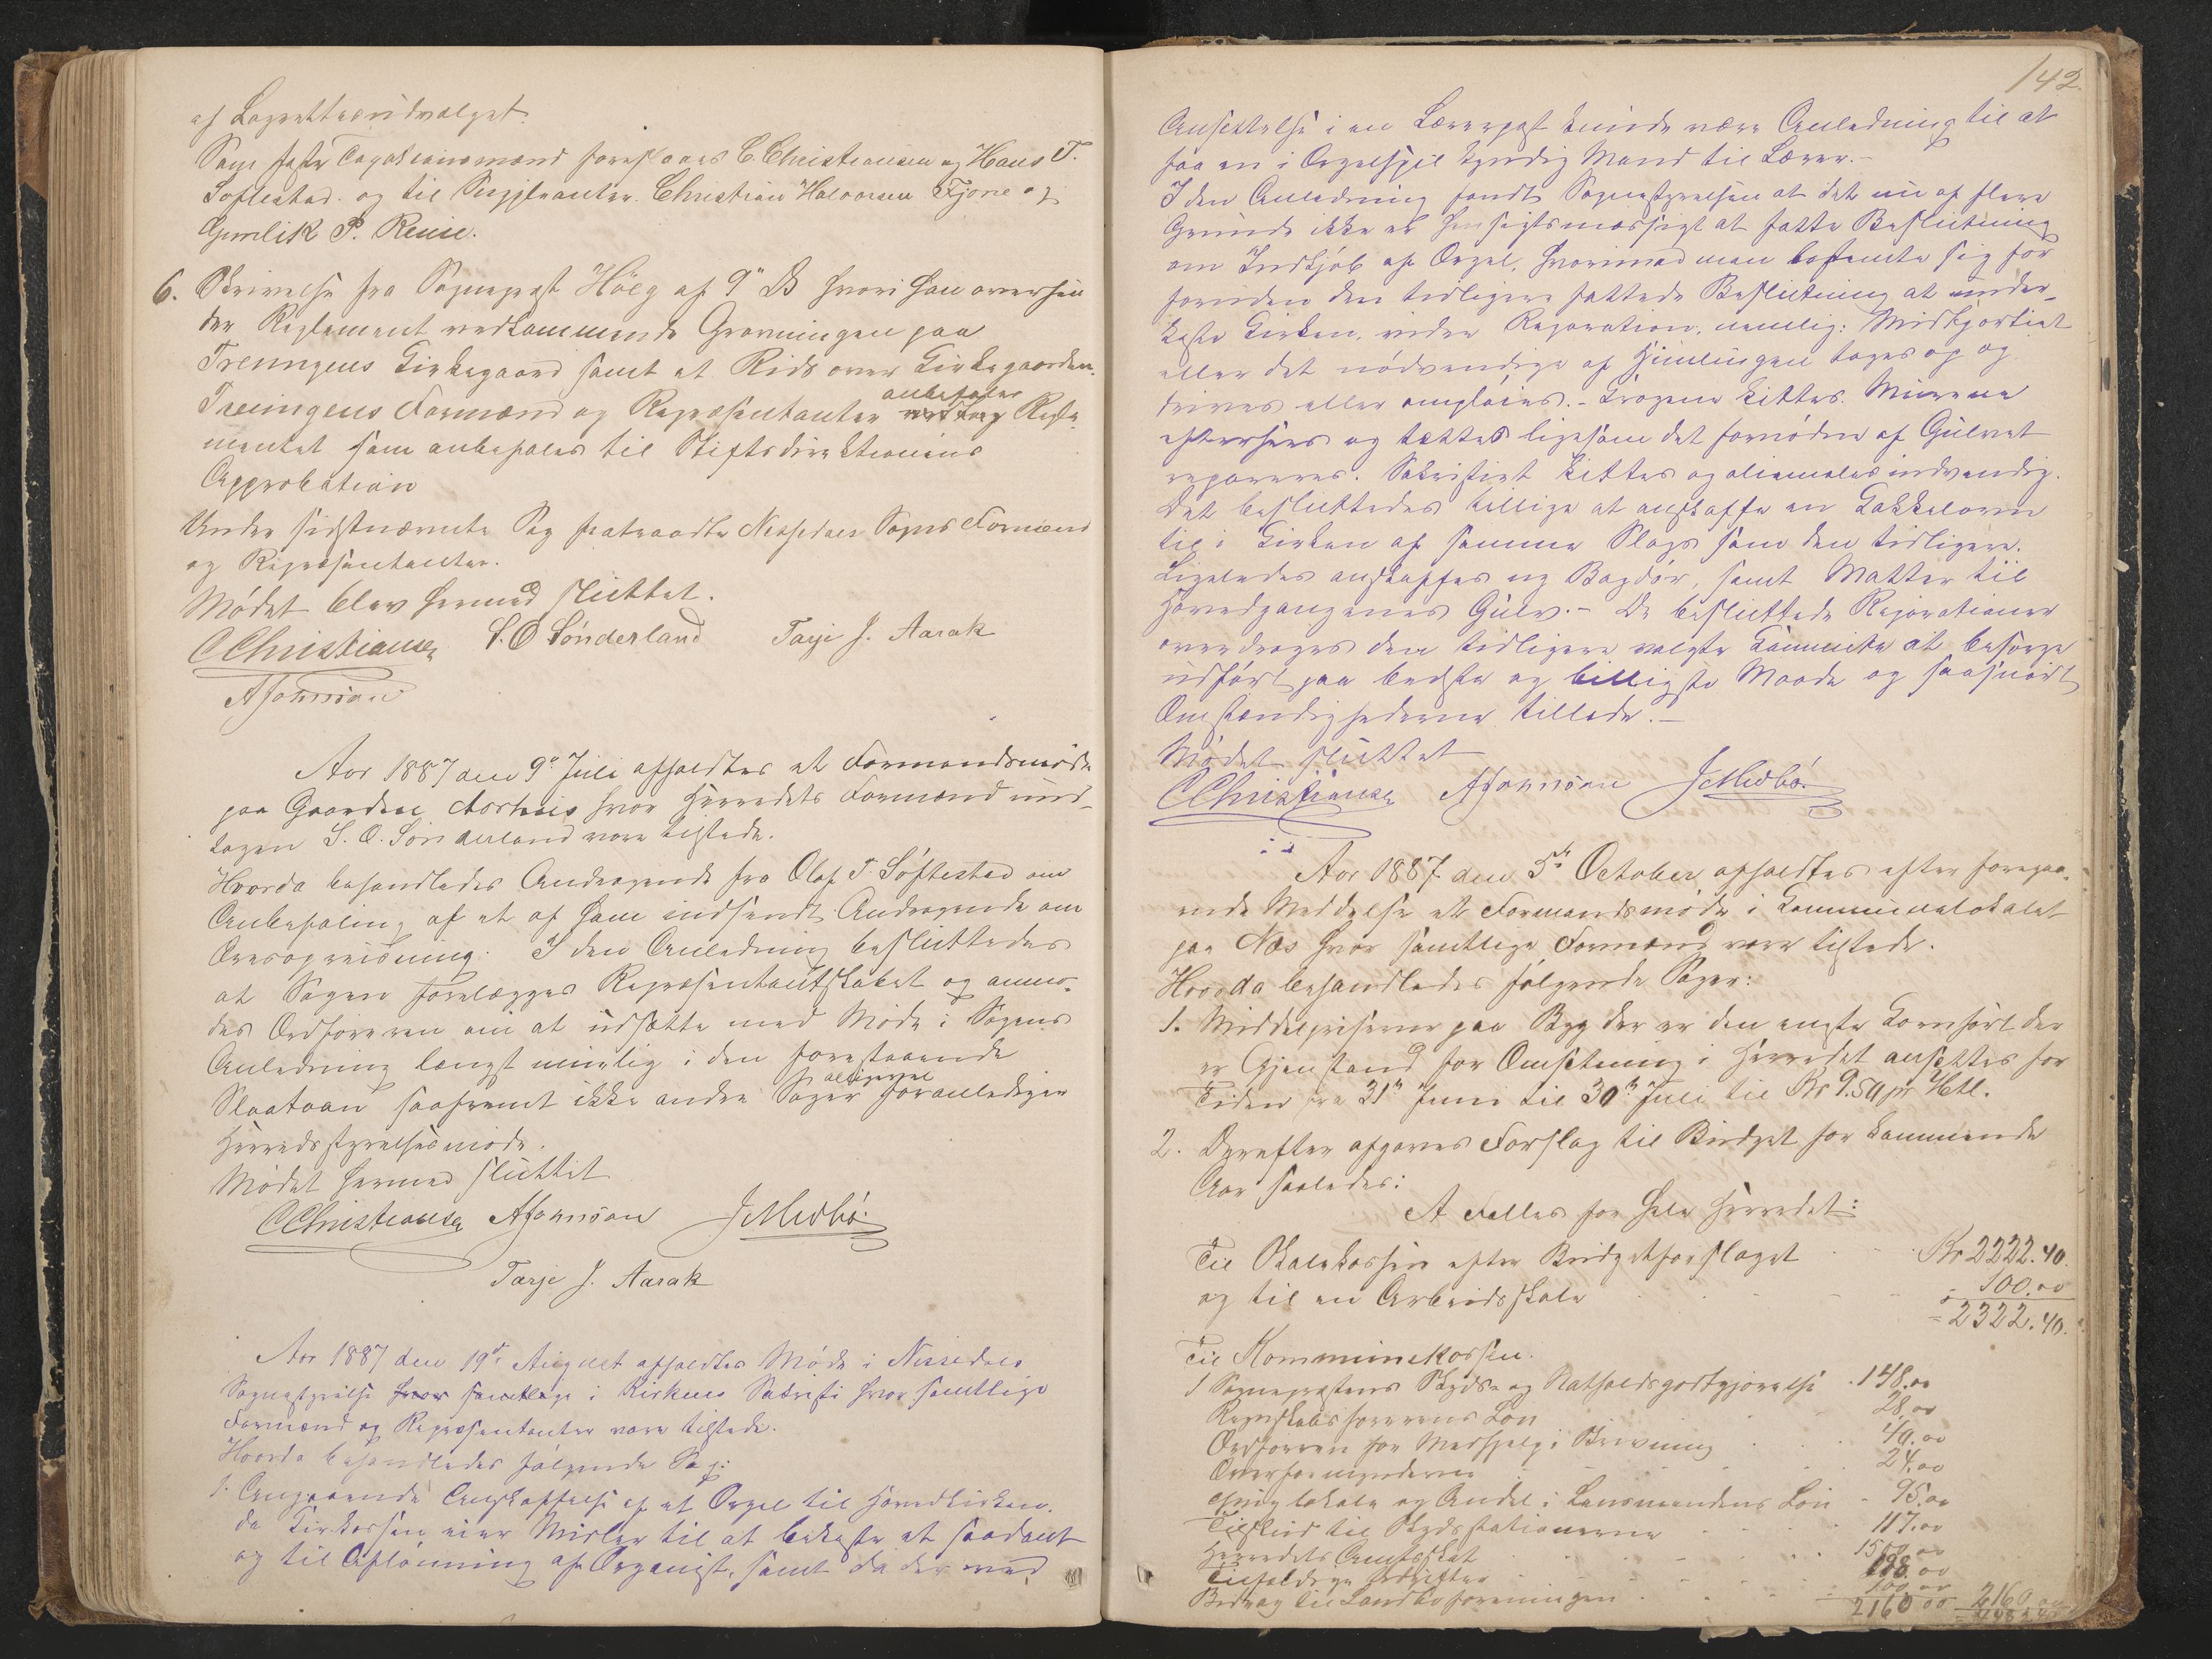 af Lagrettesudvalget.
Som faste Taxationsmænd foreslaaes C. Christiansen og Hans T.
Söftestad. og til Suppleanter. Christian Halvorsen Fjone og
Gunlik P. Reine.
6. Skrivelse fra Sogneprest Höeg af 9de ds hvori han oversen
der Reglement vedkommende Gravningen paa
Treungens Kirkegaard samt et Rids over Kirkegaarden.
Treungens Formænd og Repræsentanter anbefaler Regle
mentet som anbefales til Stiftsdirektionens
Approbation
Under sidstnævnte Sag fratraadte Nissedals Sogns Formænd
og Repræsentanter.
Mödet blev hermed sluttet.
C Christiansen S. O Sönderland Tarje J. Aarak
A Johnson
Aar 1887 den 9de Juli afholdtes et Formandsmöde
paa Gaarden Aarhuis hvor Herredets Formænd und-
tagen S. O. Sönderland vare tilstede.
Hvorda behandledes Andragende fra Olaf T. Söftestad om
Anbefaling af et af ham indsendt Andragende om
Æresopreisning. I den Anledning besluttedes
at Sagen forelægges Repræsentantskabet og anmo-
des Ordföreren om at udsætte med Möde i Sagens
Anledning længst mulig i den forestaaende
Slaataan saafremt ikke andre Sager alligevel foranlediger
Herredsstyrelsesmöde.
Mödet hermed sluttet
C Christiansen A Johnson J Medbö.
Tarje J. Aarak
Aar 1887 den 19de August afholdtes Möde i Nissedals
Sognestyrelse hvor samtlige i Kirkens Sakristi hvor samtlige
Formænd og Repræsentanter vare tilstede.
Hvorda behandledes fölgende Sag:
1. Angaaende Anskaffelse af et Orgel til Hovedkirken.
da Kirkassen eier Midler til at bekoste et saadant
og til Aflönning af Organist, samt da der ved
142.
Ansettelse i en Lærerpost kunde være Anledning til at
faa en i Orgelspil kyndig Mand til Lærer.-
I den Anledning fandt Sognestyrelsen at det nu af flere
Grunde ikke er hensigtsmæssigt at fatte Beslutning
om Indkjöb af Orgel, hvorimod man bestemte sig for
foruden den tidligere fattede Beslutning at under-
kaste Kirken, videre Reparation, nemlig: Midtpartiet
eller det nödvendige af Himlingen tages op og
drives eller omplöies.- Krogene kittes. Murene
efterhsees og tættes ligesom det fornödne af Gulvet
repareres. Sakristiet kittes og oliemales indvendig.
Det besluttedes tillige at anskaffe en Kakkelovn
til i Kirken af samme Slags som den tidligere.
Ligeledes anskaffes ny Bagdör, samt Matter til
Hovedgangenes Gulv.- De besluttede Reparationer
overdroges den tidligere valgte Kommite at besörge
udfört paa bedste og billigste Maade og saasnart
Omstændighederne tillade.-
Mödet sluttet
C Christiansen A Johnson J Medbö.
Aar 1887 den 5te October afholdtes efter foregaa-
ende Meddelse et Formandsmöde i Kommunelokalet
paa Næs hvor samtlige Formænd vare tilstede.
Hvorda behandledes fölgende Sager:
1. Middelpriserne paa Byg der er den eneste Kornsört der
er Gjenstand for Omsetning i Herredet ansettes for
Tiden fra 31te Juni til 30te Juli til Kr 9.50 pr Hktl.
2. Derefter afgaves Forslag til Budget for kommende
Aar saaledes:
A Felles for hele Herredet:
Til Skolekassen efter Budgetforslaget Kr 2222.40.
og til en Arbeidsskole 100.00
2322.40.
Til Kommunekassen.
1 Sognepræstens Skyds- og Natholdsgodtgjörelse 148.00
Regnskabsförerens Lön 28.00
Ordföreren for Medhjelp i Skrivning 40.00
Overformynderne 24.00
Thinglokale og Andel i Lensmandens Lön 95.00
Tilskud til Skydsstationerne 117.00
Herredets Amtsskat 1500.00
Tilfeldige Udgifter 108.00
Bidrag til Landboforeningen 100.00
2160 00 2160 00